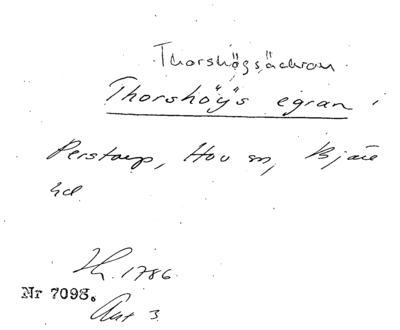 Thorshögsäckran
Thorshöÿs egran i
Perstorp, Hov sn, Bjäre
hd
Lh. 1786.
Nr 7093.
Akt 3